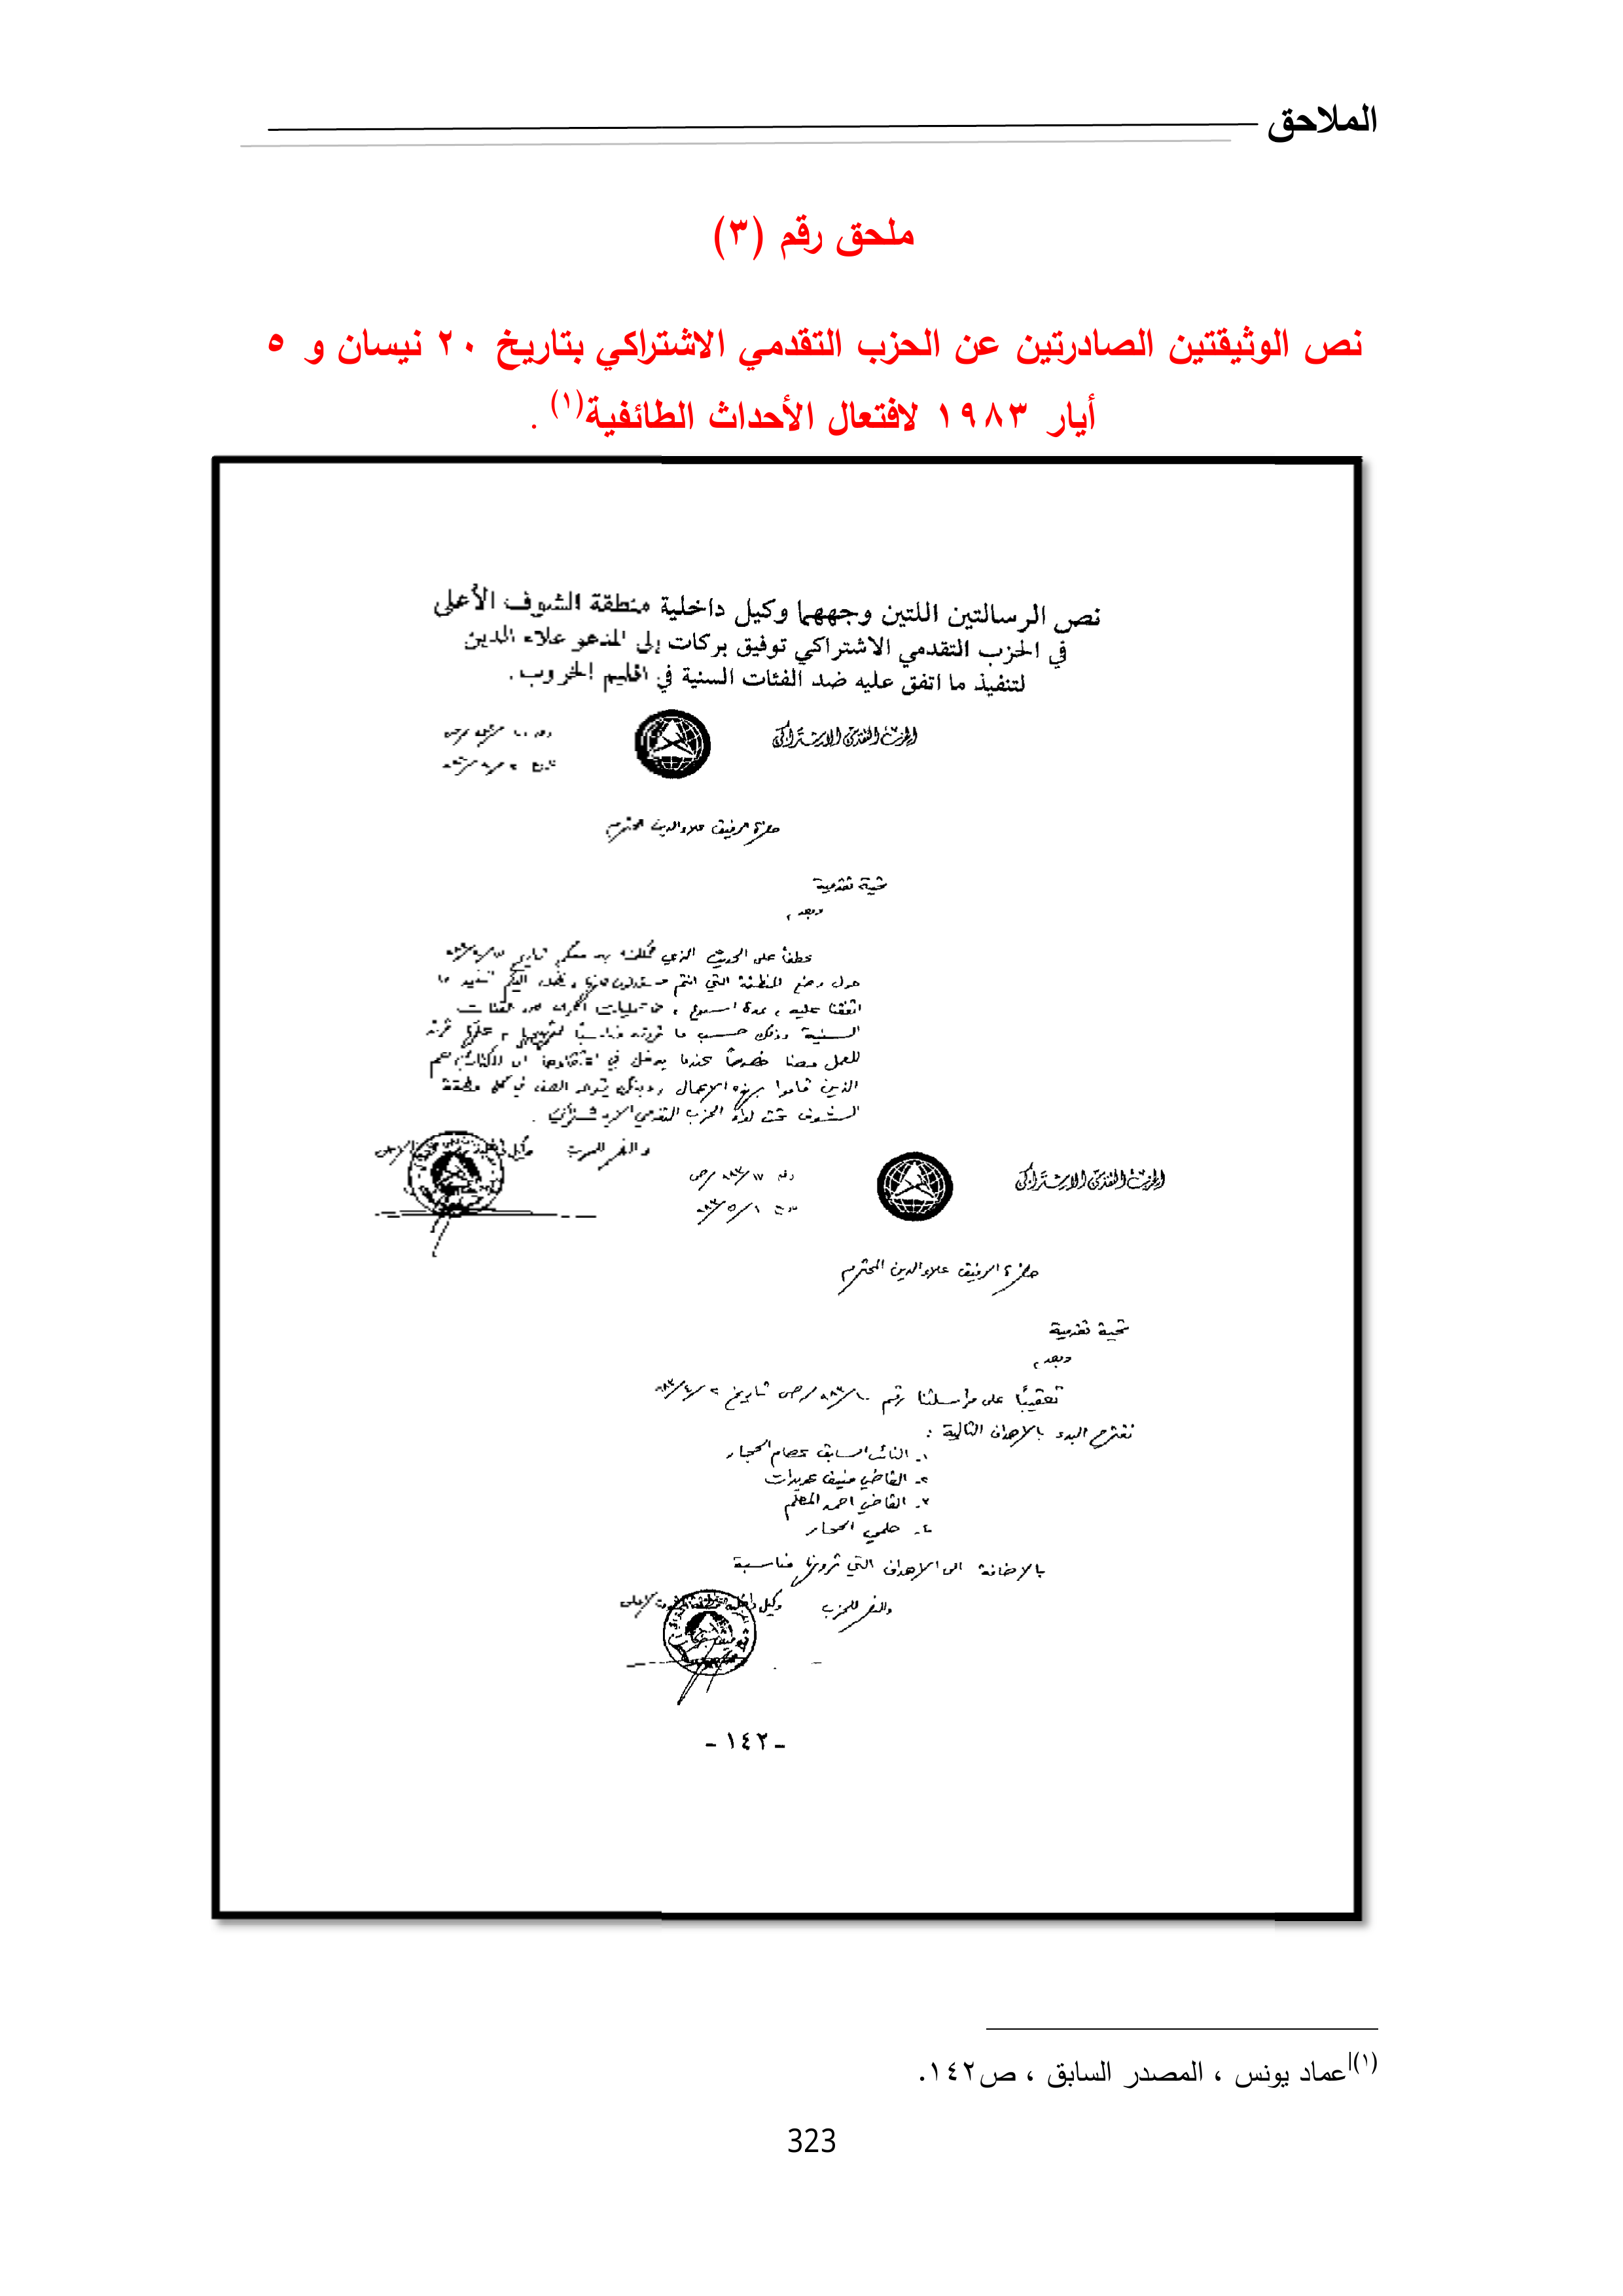 الملاحق
ملحق رقم (٣)
نص الوثيقتين الصادرتين عن الحزب التقدمي الاشتراكي بتاريخ ٢٠ نيسان و ٥
أيار ١٩٨٣ لافتعال الأحداث الطائفية(١) .
نص الرسالتين اللتين وجههما وكيل داخلية منطقة الشوف الأعلى
في الحزب التقدمي الاشتراكي توفيق بركات إلى المدعو علاء الدين
لتنفيذ ما اتفق عليه ضد الفئات السنية في اقليم الخروب.
الحزب التقدمي الاشتراكي
حضرة الرفيق علاء الدين المحترم
تحية تقدمية
وبعد ،
عطفاً على الحديث الذي
حول وضع المنطقة التي انتم
اتفقنا عليه ، بمدة اسبوع ،
السنية وذلك حسب ما ترونه مناسباً
للعمل معنا خصوصاً عندما يدخل في
الذين قاموا بهذه الاعمال وبذلك يتوحد الصف في كل منطقة
الشوف تحت لواء الحزب التقدمي الاشتراكي .
والنصر للحزب وكيل داخلية
الحزب التقدمي الاشتراكي
حضرة الرفيق علاء الدين المحترم
تحية تقدمية
وبعد ،
تعقيباً على مراسلتنا رقم ١٠/٩٨٣/ص تاريخ
نقترح البدء بالاهداف التالية :
١- النائب السابق عصام الحجار
٢- القاضي منيف عويدات
٣- القاضي احمد المعلم
٤- حلمي الحجار
بالاضافة الى الاهداف التي ترونها مناسبة
والنصر للحزب وكيل داخلية منطقة الشوف الاعلى
- ١٤٢ -
(١) عماد يونس ، المصدر السابق ، ص١٤٢.
323